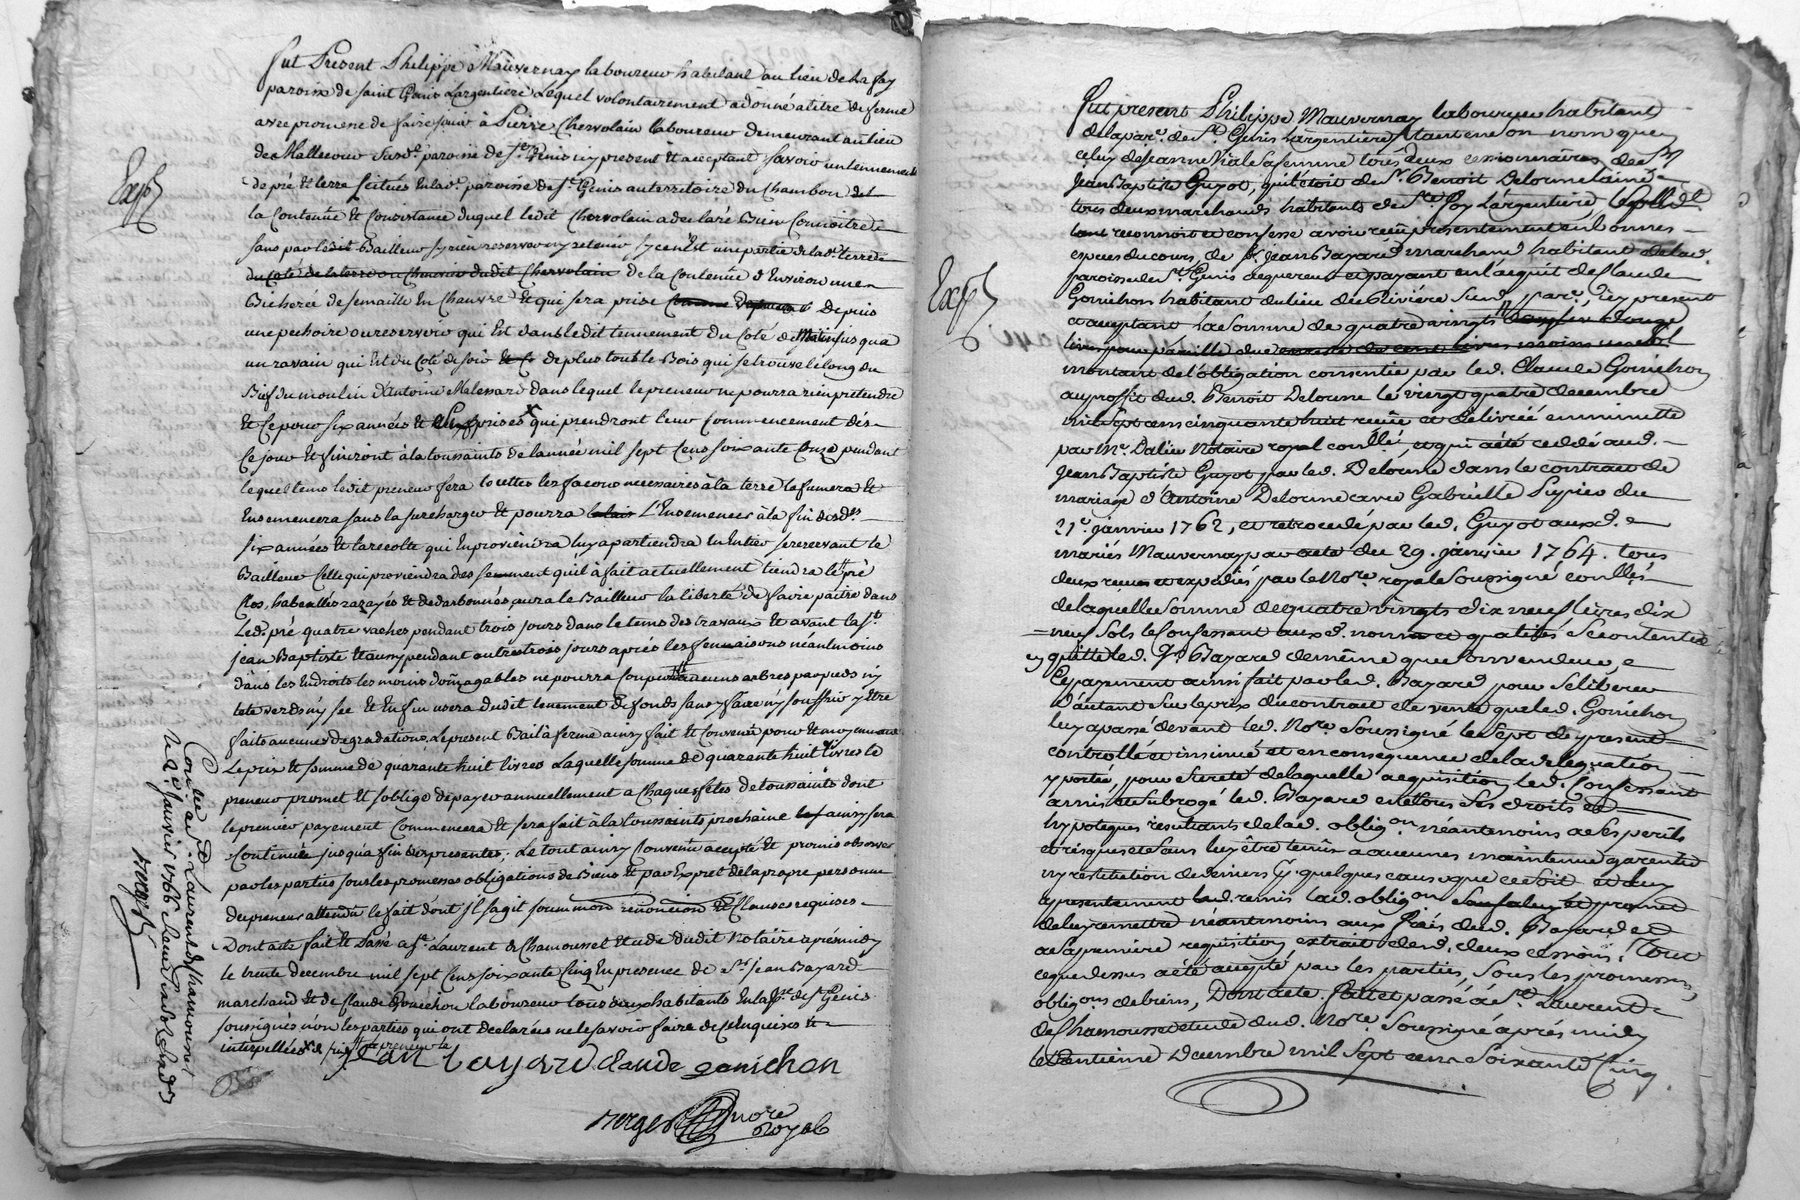 fut Present Philippe Mauvernay laboureur habitant au lieu de La fay
paroisse de saint Genis Largentiere Lequel volontairement a donné a titre de ferme
avec promesse de faire jouir à Pierre Chervolain laboureur demeurant au lieu
de Mallecour susde. paroisse de St. Genis icy present et acceptant savoir un tennement
de pré et terre scitués en lade. paroisse de St. Genis au territoire du Chambon
la Contenüe et Consistance duquel ledit Chervolain a declaré Bien Connoitre
sans par ledit Bailleur sy rien reserver ny retenir sy cen'est une partie de lade. terre
du Coté de la terre ou Chauvin dudit Chervolain de la Contenüe d'Environ une
Bicherée de semaille En Chanvre Et qui sera prise depuis
une pechoire ou reservoir qui Est dans ledit tennement du Coté de Matin jusqua
un ravain qui Est du Coté de soir et de plus tout le Bois qui se trouve le long du
Bief du moulin d'Antoine dans lequel le preneur ne pourra rien pretendre
Et Ce pour six années et prises qui prendront leur Commencement dés
Ce jour Et finiront à la toussaints de lannée mil sept Cens soixante Onze pendant
lequel tems ledit preneur fera toutes les façons necessaires à la terre la fumera Et
Ensemencera sans la surcharger Et pourra L'Ensemencer à la fin desdes.
six années Et la recolte qui En proviendra luy apartiendra En Entier se reservant le
Bailleur Celle qui proviendra des semment qu'il à fait actuellement tiendra let. pré
Clos, aura le Bailleur la liberté de faire paitre dans
Led. pré quatre vaches pendant trois jours dans le tems des travaux Et avant la St.
jean Baptiste Et aussy pendant autres trois jours aprés les semaisons néantmoins
dans les Endroits les moins domagables ne pourra Couper aucuns arbres par pied ny
tete verds ny sec Et En fin usera dudit tenement de fonds sans y faire ny souffrir y Etre
faits aucunes degradations, Le present Bail à ferme ainsy fait Et Convenû pour Et moyennant
Le prix Et somme de quarante huit livres Laquelle somme de quarante huit livres le
preneur promet Et s'oblige de payer annuellement a Chaques fétes de toussaints dont
le premier payement Commencera Et sera fait à la toussaints prochaine ainsy sera
Continuée jusqua fin des presentes; Le tout ainsy Convenû accepté Et promis observer
par les parties sous les promesses obligations de Biens Et par Expret de la propre personne
du preneur attendu le fait dont Il sagit soummon renoncion Et Clauses requises
Dont acte fait Et Passé a St. Laurent de Chamousset Etude dudit Notaire aprés midy
le trente decembre mil sept Cens soixante Cinq En presence de Sr. jean Bayard
marchand Et de Claude Gonichon laboureur tous deux habitants En lad. psse de St. Genis
soussignés non les parties qui ont declarées ne le savoir faire de ce Enquises Et
interpellées
jean bayard claude gonichon
verger nore
Royal
Exp
Con'lé a St. Laurent de Chamousset
le 2e. janvier 1766
verger
fut present Philippe Mauvernay laboureur habitant
de la par. de St. Genis Largentiere tant en son nom que
celuy de Jeanne Viale sa femme tous deux cessionnaires de Sr
Jean Baptiste Guyot, qui l'étoit de Sr. Benoit Delorme l'ainé
tous deux marchands habitants de Ste. foy L'argentiere, Lequel dt
reconnoit et confesse avoir reçu présentement en bonnes
especes du cours, de Sr. Jean Bayard marchand habitant de lad.
paroisse de St. Genis acquereur et payant en l'acquit de Claude
Gonichon habitant du lieu des Riviére susde. par., icy present
et acceptant la somme de quatre vingts
livres pour pareille due
montant de l'obligation consentie par led. Claude Gonichon
au proffit dud. Benoit Delorme le vingt quatre decembre
mil sept cens cinquante huit reçüe et délivrée en minutte
par Me. Dalier Notaire royal conllé, et qui a été ceddé aud.
Jean Baptiste Guyot par led. Delorme dans le contract de
mariage d'Antoine Delorme avec Gabrielle Pupier du
21e. janvier 1762, et retrocedé par led. Guyot auxd.
mariés Mauvernay par acte du 29. janvier 1764. tous
deux recus et expediés par le Nore. royal Soussigné conllés
de laquelle somme de quatre vingts dix neuf livres dix
neuf sols le Confessant auxd. noms et qualités Se contente et
quitte led. Sr. Bayard de même que son vendeur,
Ce payement ainsi fait par led. Bayard pour Se liberer
d'autant Sur le prix du contract de vente que led. Gonichon
luy a passé devant led. Nore. Soussigné le Sept du present
controllé et insinué et en conséquence de la delegation
y portée, pour Sureté de laquelle acquisition led. Confessant
a mis et subrogé led. Bayard en tous ses droits et
hypoteques resultants de lad. obligon. néantmoins a Ses perils
et risques et Sans luy être tenu a aucunes maintenue garentie
ny restitution de deniers p. quelque cause que ce soit et luy
a presentement remis lad. obligon. et promet
de luy remettre néantmoins aux frais dud. Bayard et
a Sa premiere requisition extrait desd. deux cessions; Tout
ce que dessus a été accepté par les parties, Sous les promesses,
obligons. de biens, Dont acte. fait et passé à St. Laurent
de Chamousset etude dud. Nore. Soussigné aprés midy
le trentieme Decembre mil Sept cens Soixante Cinq.
Exp